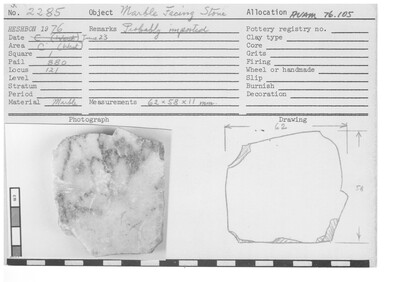 No. 2285 Object Marble Facing Stone Allocation AUAM 76.105
HESEBON 1976 Remarks Probably imported Pottery registry no.
Date 7-23 Clay type
Area C Core
Square 1 Grits
Pail 880 Firing
Locus 121 Wheel or handmade
Level Slip
Stratum Burnish
Period Decoration
Material Marble Measurements 62 × 58 × 11 mm
Photograph Drawing
62
58